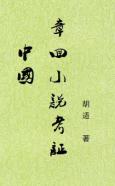 中國
章回小說考証
胡适 著